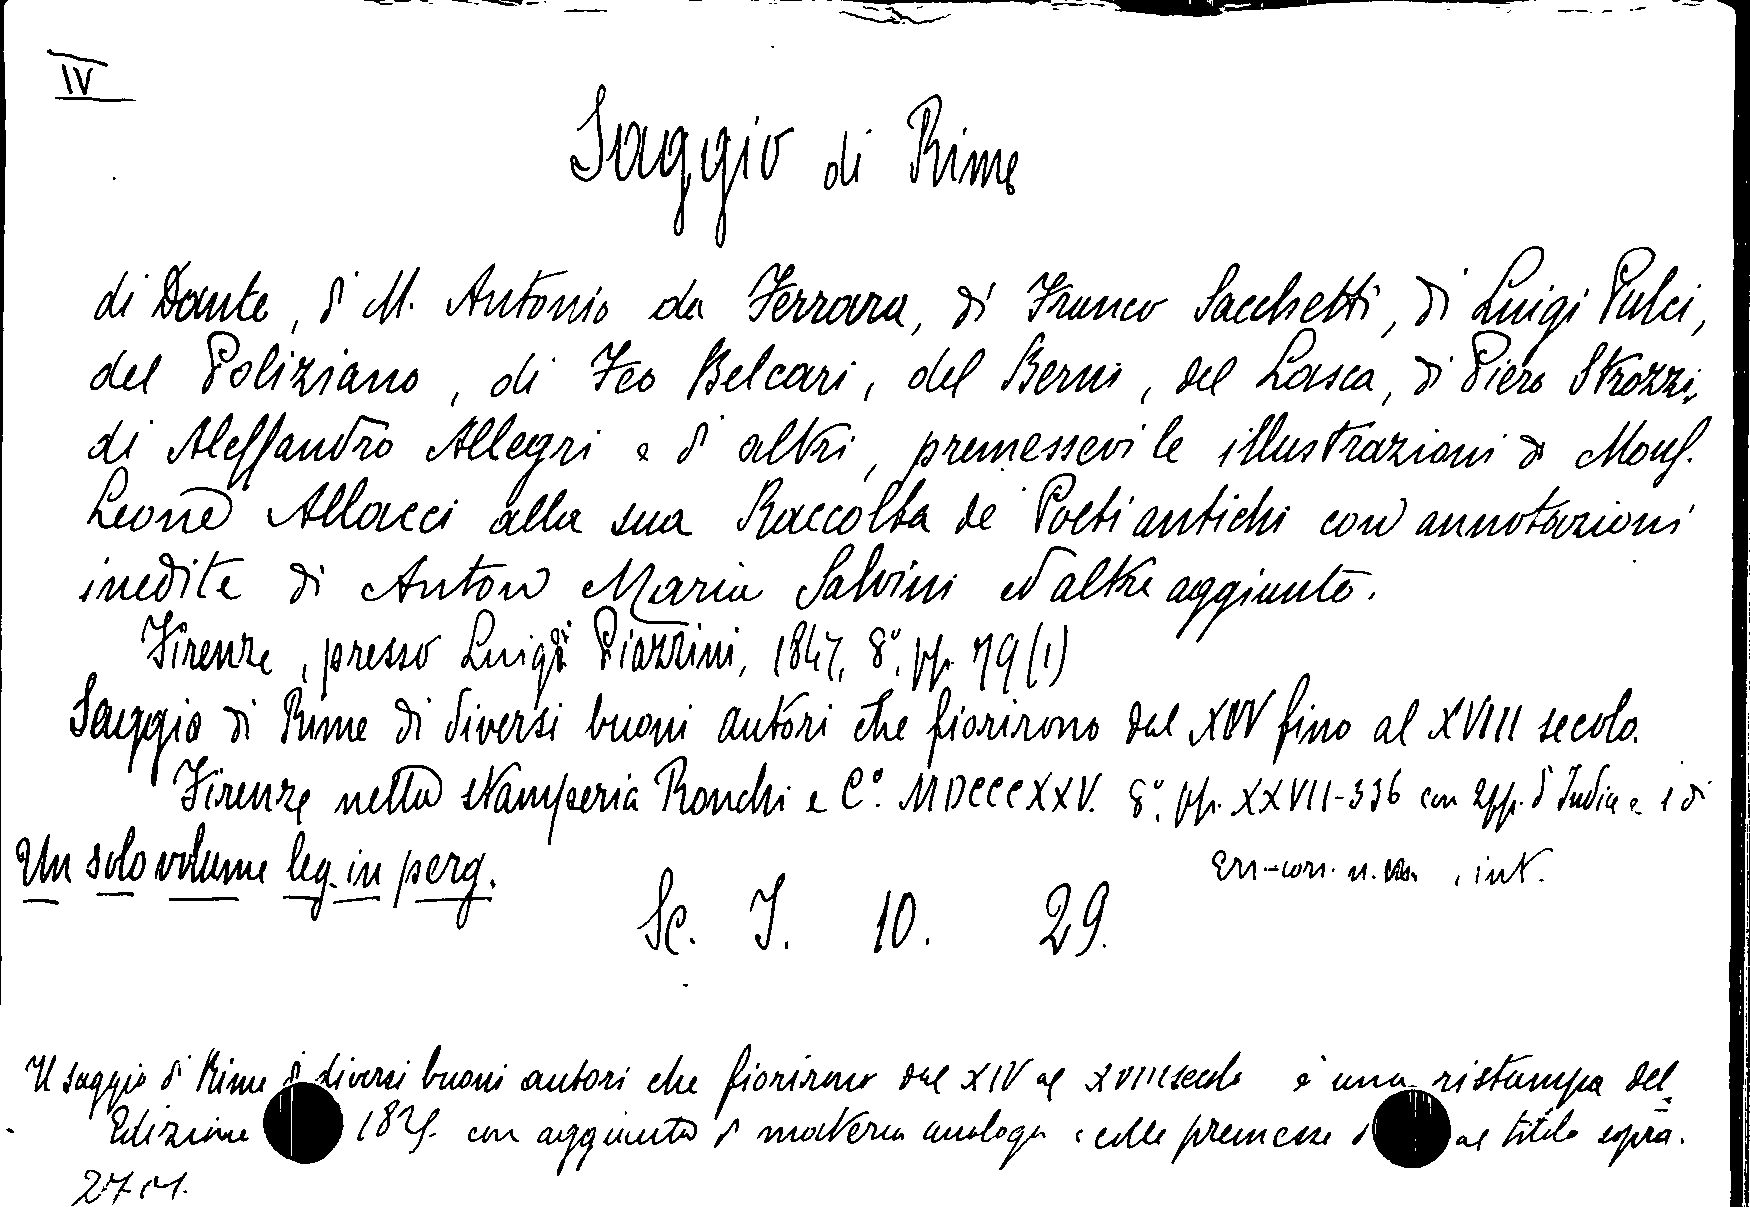 IV
Saggio di Rime
di Dante, di M. Antonio da Ferrara, di Franco Sacchetti, di Luigi Pulci,
del Poliziano, di Feo Belcari, del Berni, del Lasca, di Piero Strozzi,
di Alessandro Allegri e di altri, premessevi le illustrazioni di Mons.
Leone Allacci alla sua Raccolta de' Poeti antichi con annotazioni
inedite di Anton Maria Salvini ed altre aggiunte.
Firenze, presso Luigi Piazzini, 1847, 8°. pp. 79 (1)
Saggio di Rime di diversi buoni autori che fiorirono dal XIV fino al XVIII secolo.
Firenze nella stamperia Ronchi e C°. MDCCCXXV. 8°. pp. XXVII-336 con 2 pp. d'Indice e 1 di
Un solo volume leg. in perg.
Err-corr. n. , int.
Sc. I. 10. 29.
Il saggio di Rime di diversi buoni autori che fiorirono dal XIV al XVIII secolo è una ristampa del
Edizione con aggiunta di materia analoga e colle premesse al titolo sopra.